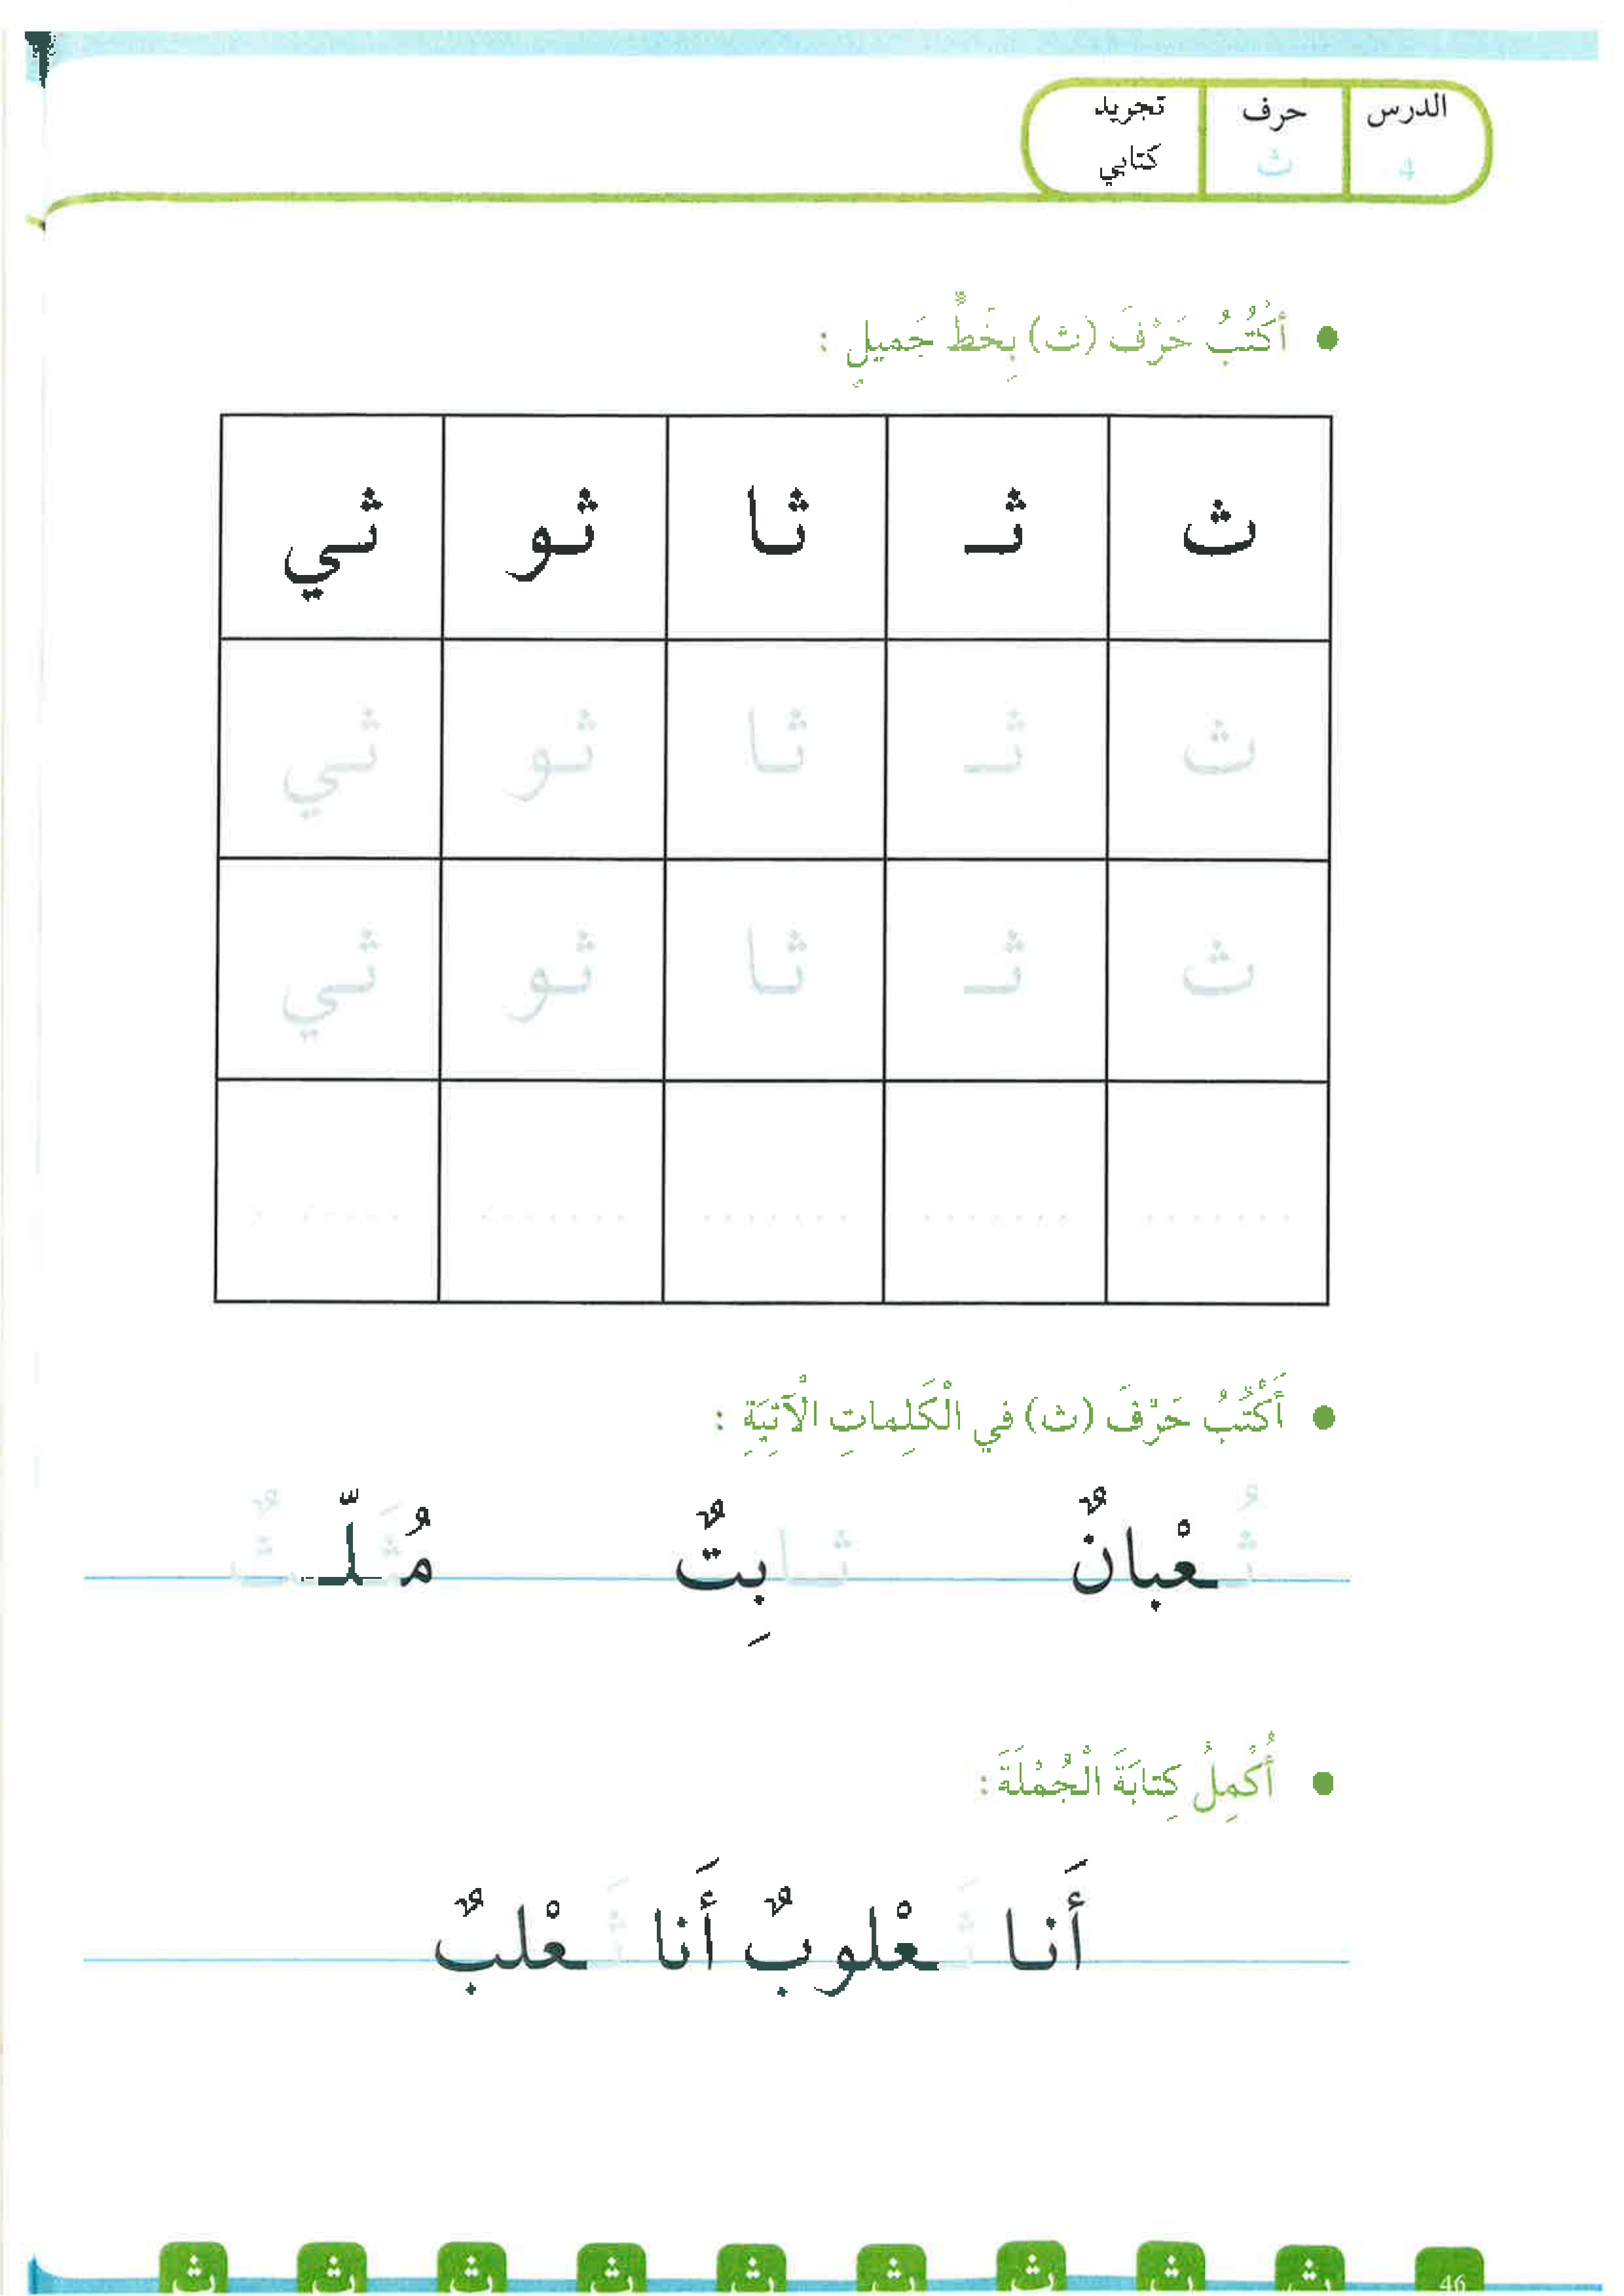 الدرس حرف تجريد
4 ث كتابي
أَكْتُبُ حَرْفَ (ث) بِخَطٍّ جَميلٍ :
ث ثـ ثا ثو ثي
ث ثـ ثا ثو ثي
ث ثـ ثا ثو ثي
....... ....... ....... ....... .......
أَكْتُبُ حَرْفَ (ث) في الْكَلِماتِ الْآتِيَةِ :
ثُعْبانٌ ثابِتٌ مُثَلَّثٌ
أُكْمِلُ كِتابَةَ الْجُمْلَةَ :
أَنا ثَعْلوبٌ أَنا ثَعْلبٌ
46 ث ث ث ث ث ث ث ث ث